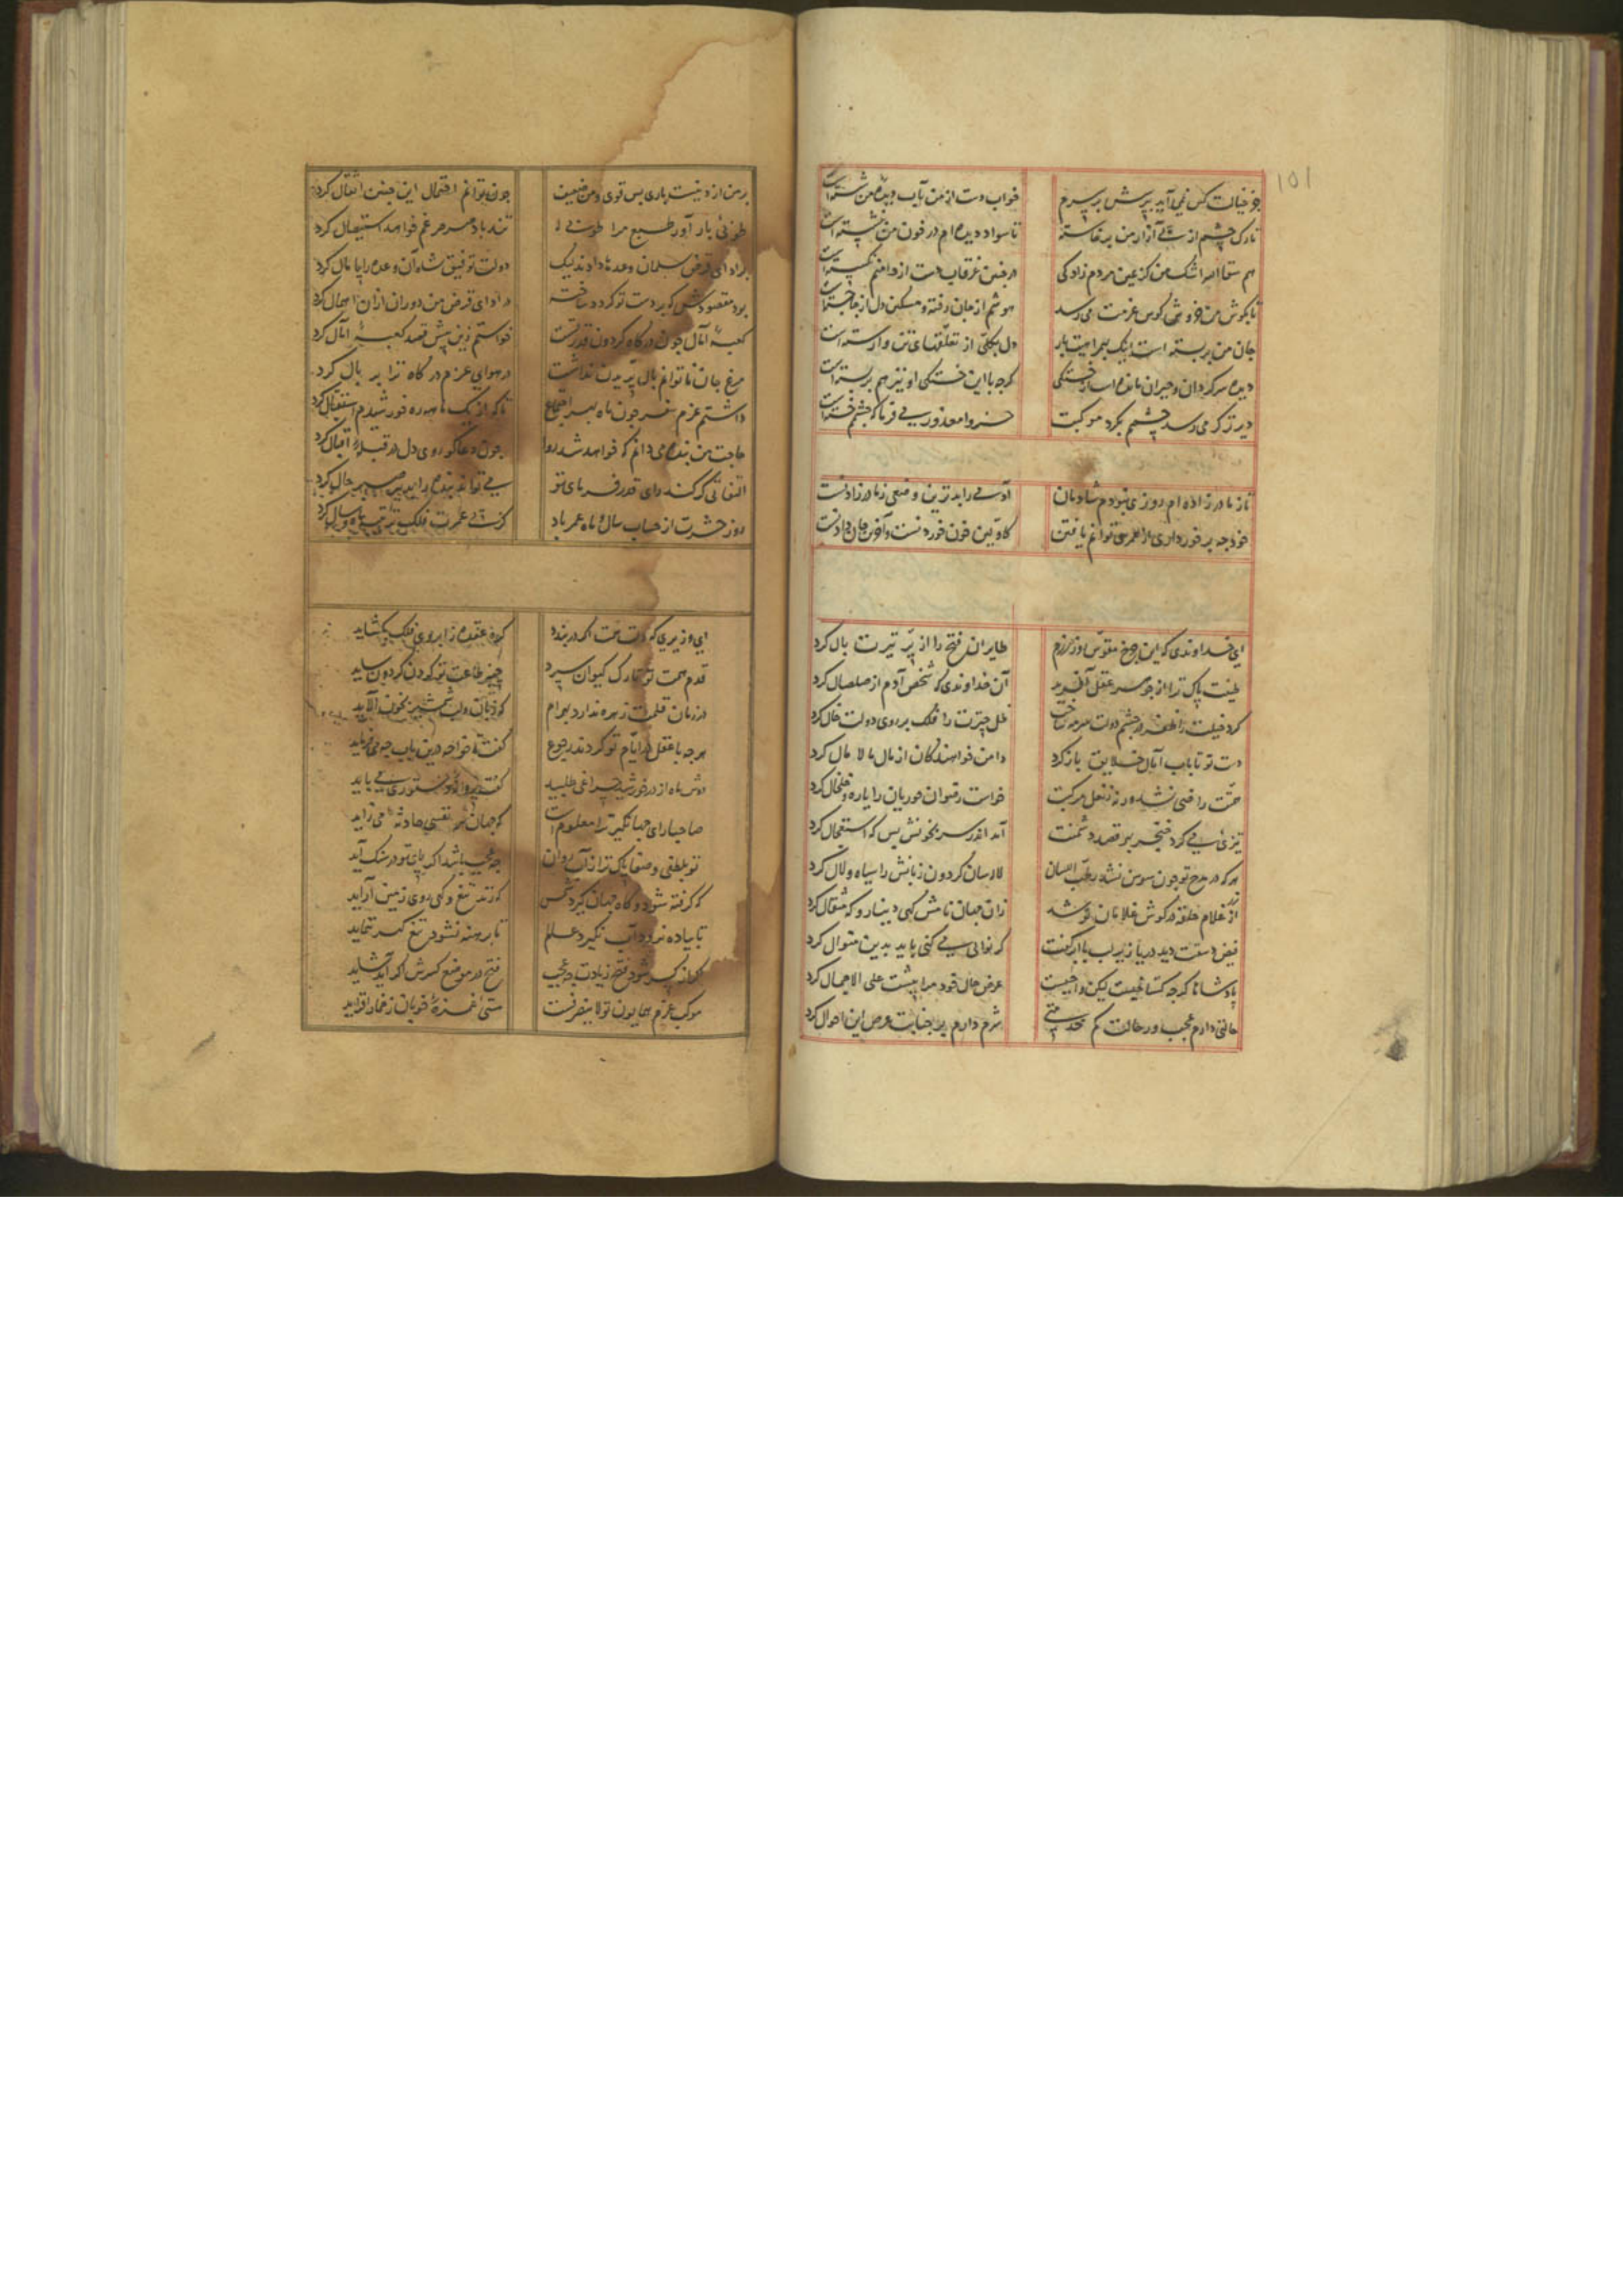 ۱۵۱
جز خیالت کس نمی‌آید بپرسش بر سرم خواب دست از من بآب دیده من شسته است
تارک چشم از پی آزار من برخاسته تا سواد دیده‌ام در خون من بنشسته است
هم سقا الله اشک من کز عین مردم زادگی در چنین غرقاب دست از دامنم نگسسته است
تا بگوش من خروش کوس عزمت می‌رسد هوشم از جان رفته و مسکین دل از جا جسته است
جان من بربسته است اینک بهمراهیت بار دل بکلی از تعلقهای تن وارسته است
دیده سرگردان و حیران مانده است از خستگی گرچه با این خستگی او نیز هم بربسته است
دیرتر گر می‌رسد چشمم بگرد موکبت خسروا معذور می‌فرما که چشمم خسته است
تا ز مادر زاده‌ام روزی نبودم شادمان آدمی را بدترین وضعی ز مادر زادنست
خود چه برخورداری از عمر می‌توانم یافتن کاولین خون خوردنست و آخرین جان دادنست
ای خداوندی که این چرخ مقوس روز رزم طایران فتح را از پر تیرت بال کرد
طینت پاک ترا از جوهر عقل آفرید آن خداوندی که شخص آدم از صلصال کرد
گرد خیلت را ظفر در چشم دولت سرمه ساخت ظل چترت را فلک بر روی دولت خال کرد
دست تو تا باب آمال خلایق باز کرد دامن خواهندگان از مال مالامال کرد
همت راضی نشد ورنه ز نعل مرکبت خواست رضوان حوریان را یاره و خلخال کرد
تیزیی می‌کرد خنجر بر قصد دشمنت آمد اندر سر بخونش بس که استعجال کرد
هر که در مدح تو چون سوسن نشد رطب اللسان لاله‌سان گردون زبانش را سیاه و لال کرد
زر غلام حلقه در گوش غلامان تو شد زان جهان نامش گهی دینار و گه مثقال کرد
فیض دستت دید دریا زیر لب با ابر گفت گر نوالی می‌کنی باید بدین منوال کرد
پادشاها گرچه گستاخیست لیکن واجبست عرض حال خود مرا پیشت علی الاجمال کرد
حالتی دارم عجب در حالت کم خدمتی شرم دارم بر جنابت عرض این احوال کرد
بر من از دینست باری بس قوی و من ضعیف چون توانم احتمال این چنین اثقال کرد
تندباد صرصر غم خواهد استیصال کرد
بر ادای قرض سلمان وعده‌ها دادند لیک دولت توفیق شاه آن وعده را پامال کرد
بود مقصودش که بر دست تو گردد ساخته در ادای قرض من دوران از ان اهمال کرد
کعبهٔ آمال چون درگاه گردون قدر تست خواستم زین پیش قصد کعبهٔ آمال کرد
مرغ جان ناتوانم بال پریدن نداشت در هوای عزم درگاه ترا پر بال کرد
داشتم عزم سفر چون ماه بهر اجتماع
حاجت من بنده می‌دانم که خواهد شد روا چون دعاگو روی دل در قبلهٔ اقبال کرد
التفاتی گر کند رای قدر فرمای تو می‌تواند بنده را
روز حشرت از حساب سال و ماه عمر باد
ای وزیری که دست همت اگر دربندد گره عقده ز ابروی فلک بگشاید
قدم همت تو تارک کیوان سپرد چنبر طاعت تو گردن گردون ساید
در زمان قلمت زهره ندارد بهرام که زبان و لب شمشیر بخون آلاید
هر چه با عقل در ایام تو کردند رجوع گفت تا خواجه درین باب چه می‌فرماید
دوش ماه از در خورشید چراغی طلبید
صاحبا رای جهانگیر ترا معلوم است که جهان هر نفسی حادثه‌ای می‌زاید
تو بلطفی و صفا پاک‌تر از آب روان چه عجب باشد اگر پای تو در سنگ آید
که گرفته شود و گاه جهان گیرد شمس گه زند تیغ و گهی روی زمین آراید
تا پیاده نرود آب نگیرد عالم تا برهنه نشود تیغ گهر ننماید
موکب عزم همایون تو لاینصرفست مستی غمزهٔ خوبان ز خمار افزاید